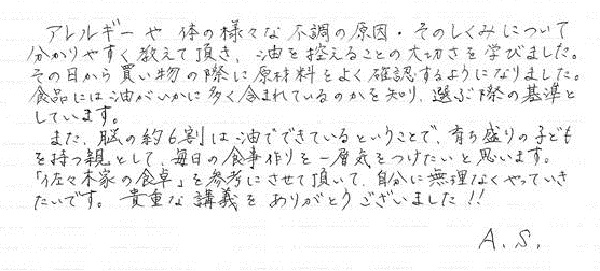 アレルギーや 体の様々な 不調の原因・そのしくみについて
分かりやすく教えて頂き、油を控えることの大切さを学びました。
その日から買い物の際に原材料をよく確認するようになりました。
食品には油がいかに多く含まれているのかを知り、選ぶ際の基準と
しています。
また、脳の約6割は油でできているということで、育ち盛りの子ども
を持つ親として、毎日の食事作りを一層気をつけたいと思います。
「佐々木家の食卓」を参考にさせて頂いて、自分に無理なくやっていき
たいです。貴重な講義を ありがとうございました!!
A.S.